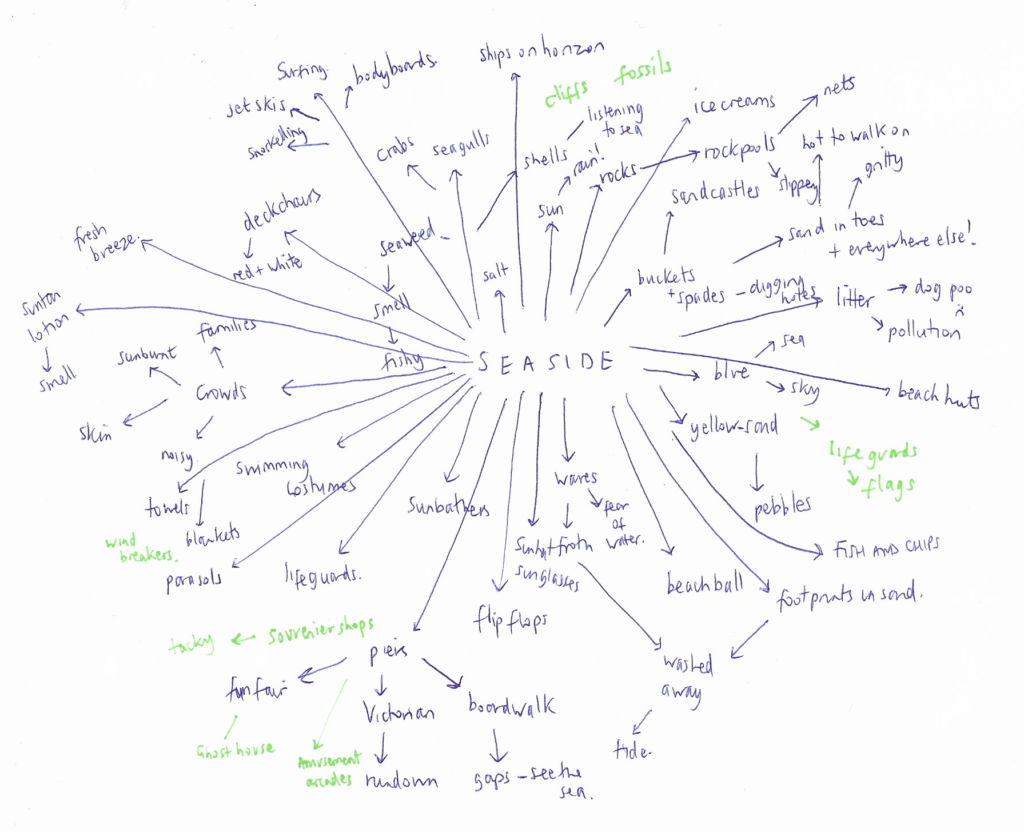 ships on horizon
Surfing.
bodyboards.
cliffs
fossils
jet skis
snorkelling
listening
to sea
ice creams
nets
crabs
seagulls
shells
rain!
rocks
rockpools
hot to walk on
slippey
gritty
deckchairs
red + white
seaweed
sun
sandcastles
sand in toes
+ everywhere else!
fresh
breeze.
salt
buckets
+ spades – digging
holes
litter
dog poo
pollution
suntan
lotion
smell
families
smell
fishy
SEASIDE
sunburnt
crowds
skin
noisy.
blue
sea
sky
beach huts
yellow-sand
life guards
flags
swimming
costumes
Sunbathers
waves
fear
of
water.
pebbles
towels
blankets
wind
breakers.
parasols
lifeguards.
Sunhat
froth
sunglasses
beachball
FISH AND CHIPS
footprints in sand.
flip flops
tacky
souvenier shops
piers
fun fair
washed
away
Victorian
boardwalk
Ghost house
Amusement
arcades
rundown
gaps – see the
sea.
tide.